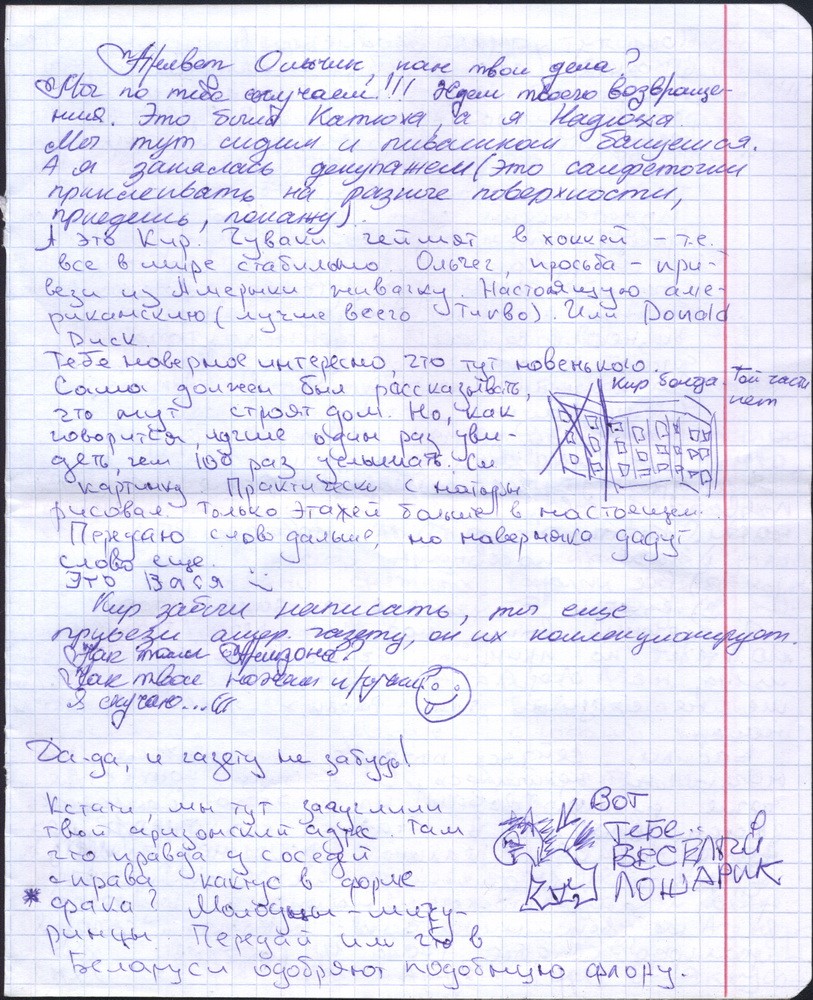 Превет Ольчик, как твои дела?
Мы по тебе скучаем!!! Ждем твоего возвраще-
ния. Это была Катюха, а я Надюха
Мы тут сидим и пивасиком балуемся.
А я занялась декупажем (это салфеточки
приклеивать на разные поверхности,
приедешь, покажу).
А это Кир. Чуваки геймят в хоккей – т.е.
все в мире стабильно. Ольчег, просьба – при-
вези из Амерыки жвачку. Настоящую аме-
риканскую (лучше всего Turbo). Или Donald
Duck.
Тебе наверное интересно, что тут новенького.
Саша должен был рассказывать,
что тут строят дом. Но, как
говорится, лучше один раз уви-
деть, чем 100 раз услышать. См
картинку. Практически с натуры
рисовал только этажей больше в настоящем.
Кир
Той части
нет
Передаю слово дальше, но наверняка дадут
слово еще.
Это Вася
Кир забыл написать, ты еще
привези амер. газету, он их коллекционирует.
Как там Аризона?
Как твои ножки и ручки?
Я скучаю...(((
Да-да, и газету не забудь!
Кстати, мы тут загуглили
твой аризонский адрес. Там
что правда у соседей
справа кактус в форме
* фака? Молодцы – мичу-
ринцы. Передай им что в
Беларуси одобряют подобную флору.
Вот
тебе..
ВЕСЁЛЫЙ
ЛОШАРИК